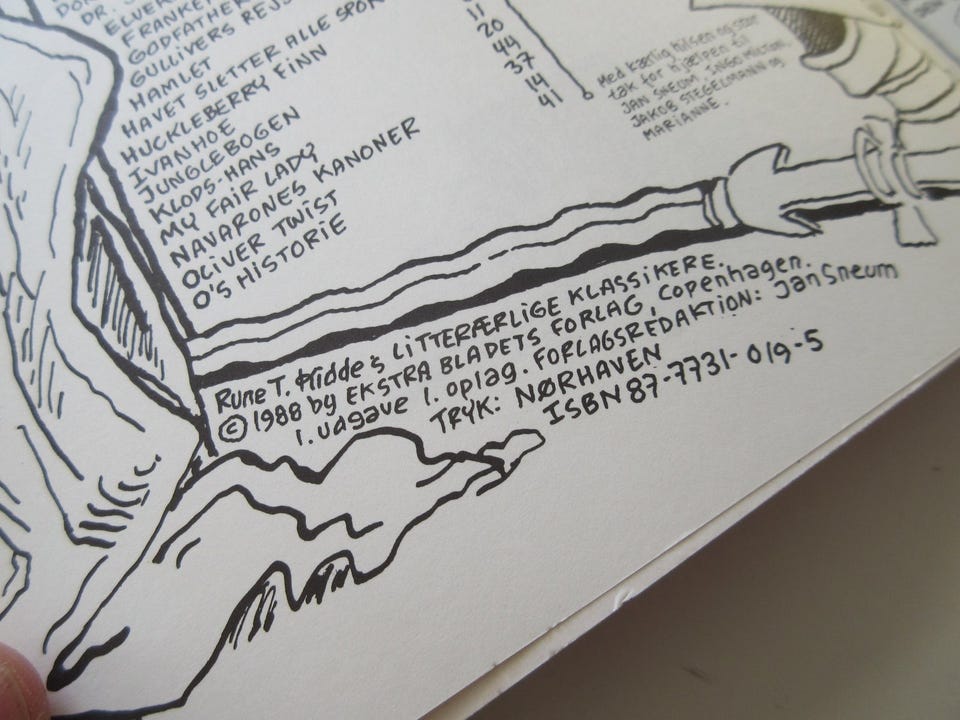 DR.
ELVER
FRANKE
GODFATHER
GULLIVERS REJS
HAMLET
HAVET SLETTER ALLE SPOR
HUCKLEBERRY FINN
IVANHOE
JUNGLEBOGEN
KLODS-HANS
MY FAIR LADY
NAVARONES KANONER
OLIVER TWIST
O'S HISTORIE
11
20
44
37
14
41
Med kærlig hilsen og stor
tak for hjælpen til
JAN SNEUM, INGO MILTON,
JAKOB STEGELMANN og
MARIANNE.
Rune T. Kidde's LiTTERÆRLiGE KLASSiKERE.
© 1988 by EKSTRA BLADETS FORLAG, Copenhagen.
1. udgave 1. oplag. FORLAGSREDAKTION: Jan Sneum
TRYK: NØRHAVEN
ISBN 87-7731-019-5